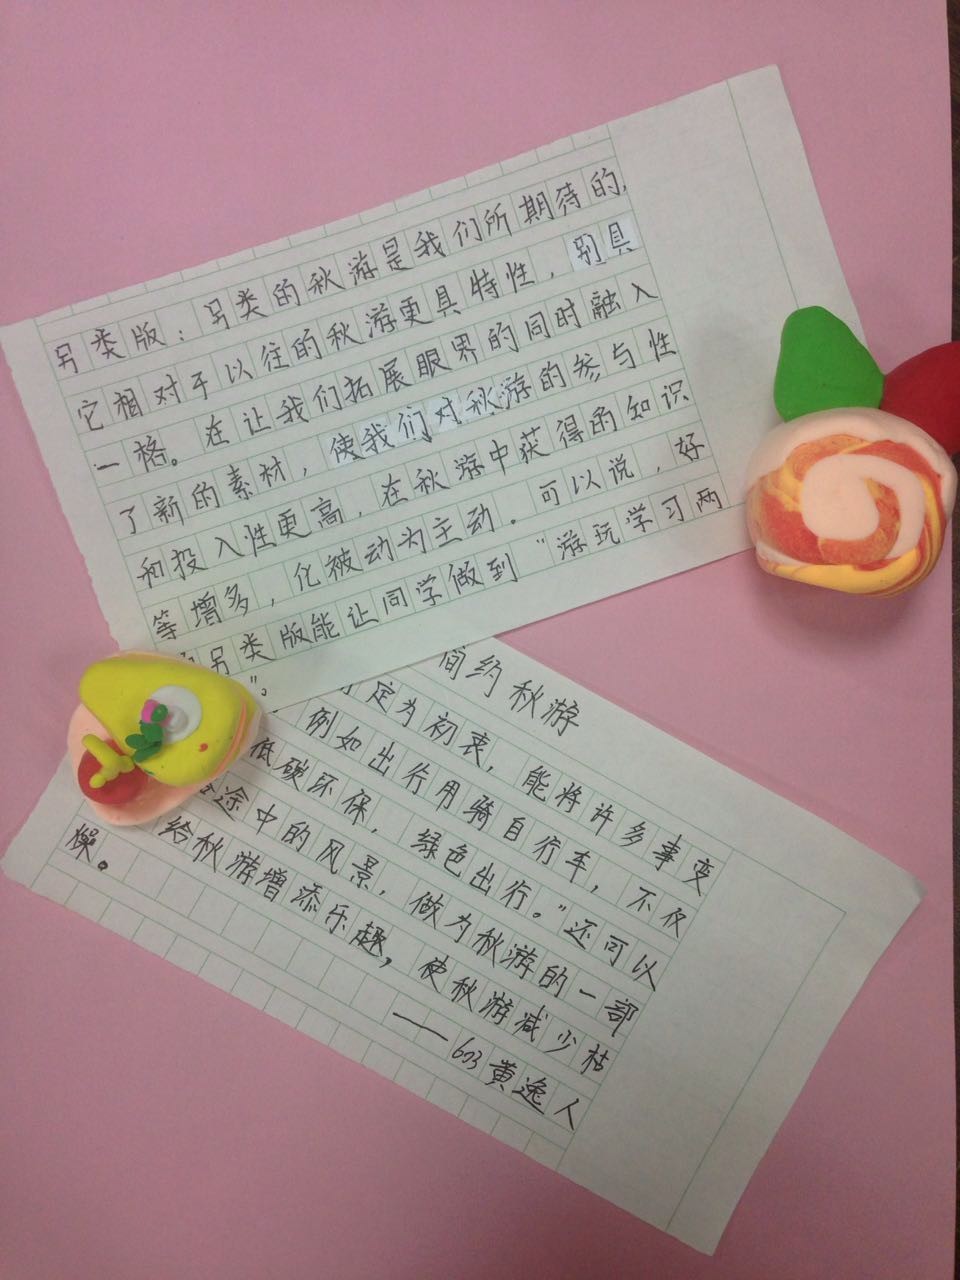 另类版：另类的秋游是我们所期待的，
它相对于以往的秋游更具特性，别具
一格。在让我们拓展眼界的同时融入
了新的素材，使我们对秋游的参与性
和投入性更高，在秋游中获得的知识
等增多，化被动为主动。可以说，好
另类版能让同学做到“游玩学习两
”。
简约秋游
定为初衷，能将许多事变
例如出行用骑自行车，不仅
低碳环保，绿色出行。”还可以
途中的风景，做为秋游的一部
给秋游增添乐趣，使秋游减少枯
燥。
——603黄逸人